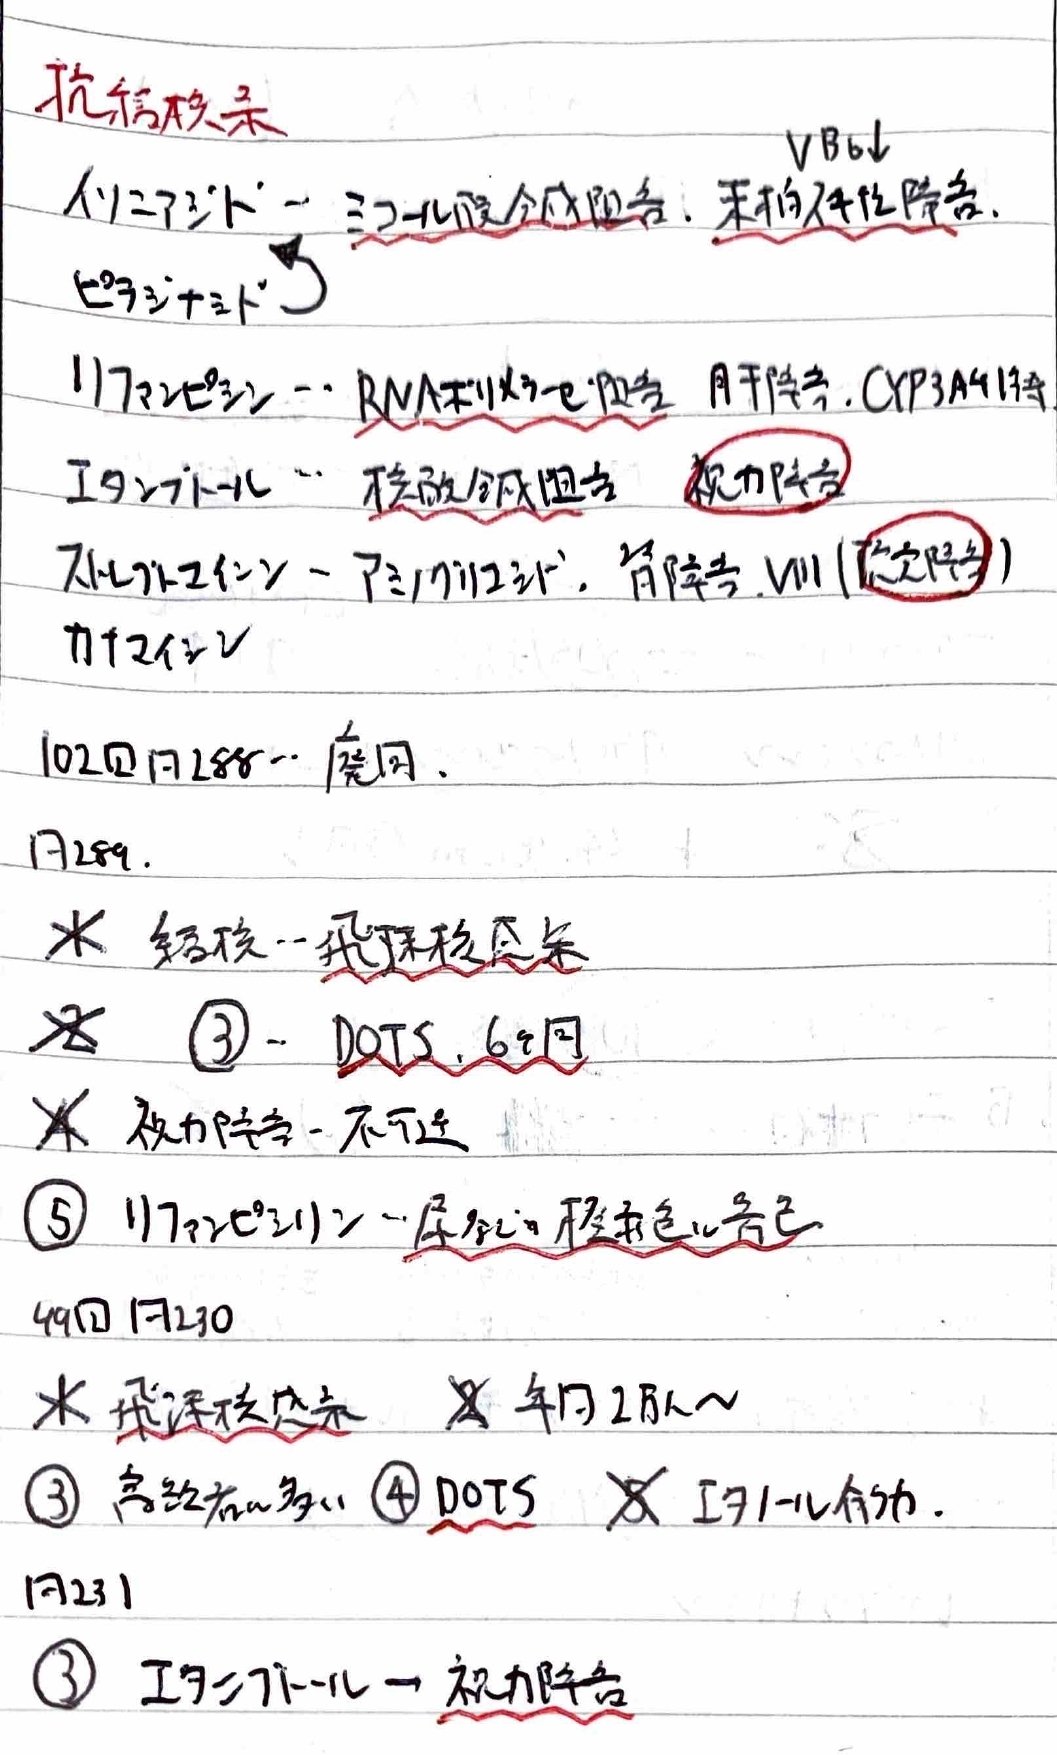 抗結核薬
VB6↓
イソニアジド … ミコール酸合成阻害、末梢神経障害、
ピラジナミド
リファンピシン … RNAポリメラーゼ阻害 肝障害、CYP3A4誘導
エタンブトール … 核酸合成阻害 視力障害
ストレプトマイシン … アミノグリコシド、腎障害、VIII(聴覚障害)
カナマイシン
102回問288…
問289.
1 結核…飛沫核感染
2 ③… DOTS、6ヶ月
4 視力障害…不可逆
⑤ リファンピシリン…尿などが橙赤色に着色
49回問230
1 飛沫核感染 2 年間2万人〜
③ 高齢者に多い ④DOTS 5 エタノール有効.
問231
③ エタンブトール → 視力障害